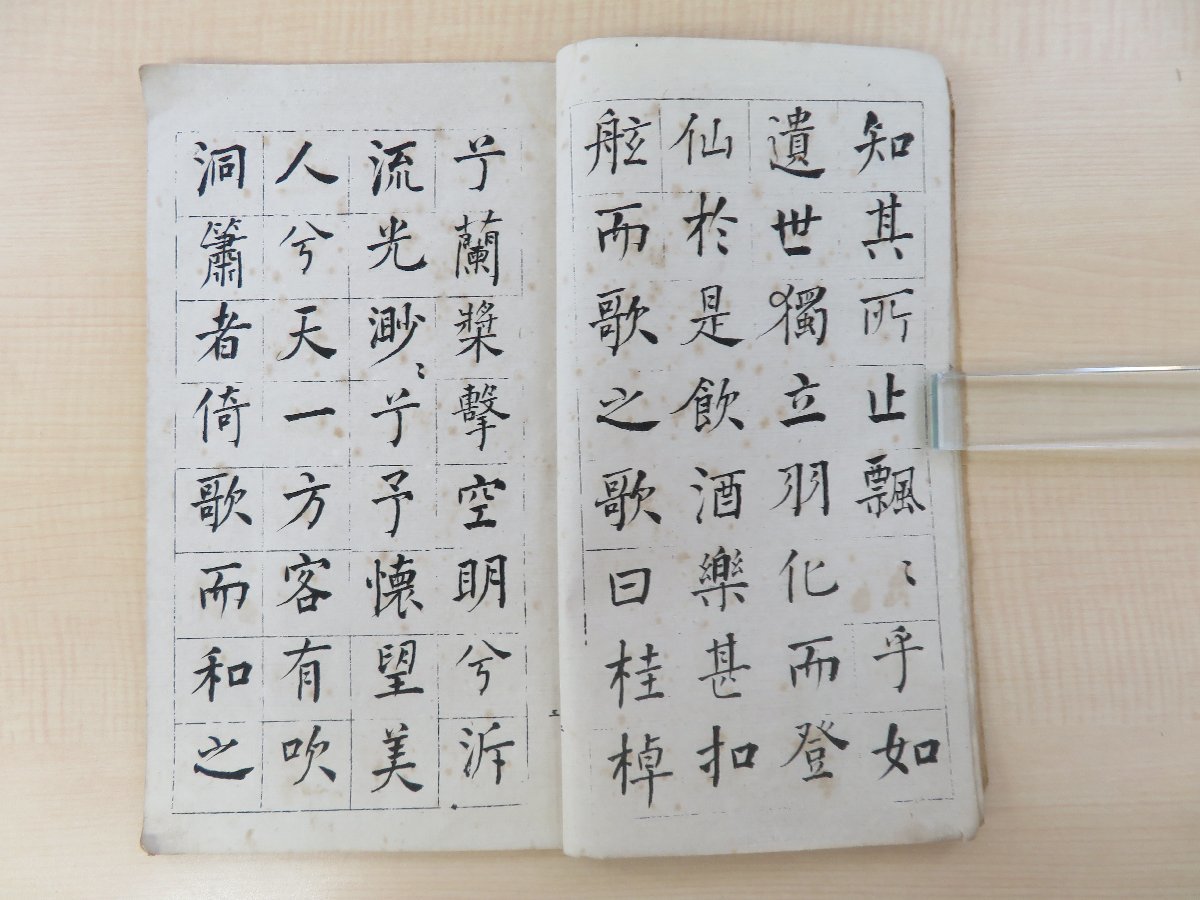 知其所止飄〻乎如
遺世獨立羽化而登
仙於是飲酒樂甚扣
舷而歌之歌曰桂棹
兮蘭槳擊空明兮泝
流光渺〻兮予懷望美
人兮天一方客有吹
洞簫者倚歌而和之